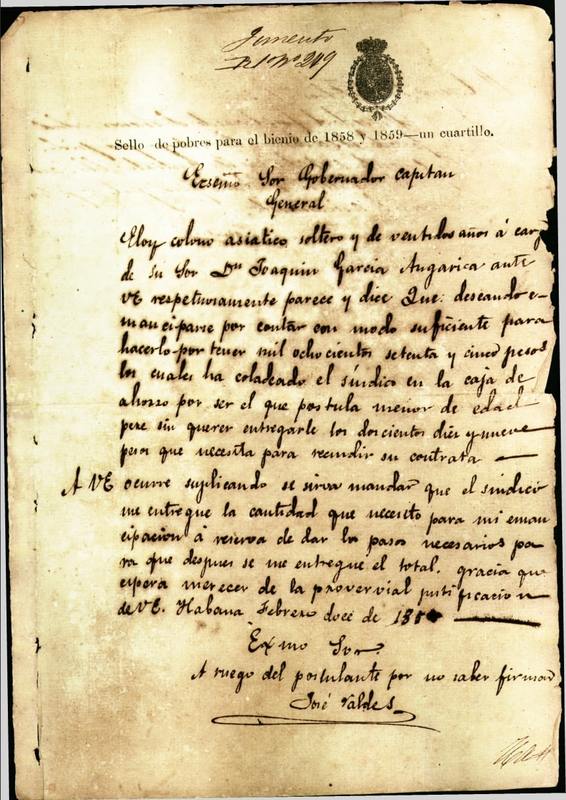 Fomento
Sello de pobres para el bienio de 1858 y 1859—un cuartillo.
Escmô Sor Gobernador Capitan
General
Eloy colono asiatico soltero y de ventidos años á carg
de su Sor Dn Joaquin Garcia Angarica ante
VE respetuosamente parece y dice Que: deseando e-
manciparse por contar con modo suficiente para
hacerlo por tener mil ochocientos setenta y cinco pesos
los cuales ha colocado el síndico en la caja de
ahorro por ser el que postula menor de edad
pero sin querer entregarle los doscientos diez y nueve
pesos que necesita para recindir su contrata —
A VE ocurre suplicando se sirva mandar que el sindico
me entregue la cantidad que necesito para mi eman
cipacion á reserva de dar los pasos necesarios pa
ra que despues se me entregue el total. gracia que
espera merecer de la provervial justificacion
de VE. Habana Febrero doce de
Exmo Sor.
A ruego del postulante por no saber firmar
José Valdes